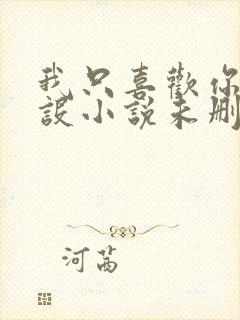 我只喜歡你
設小說未刪
河茜